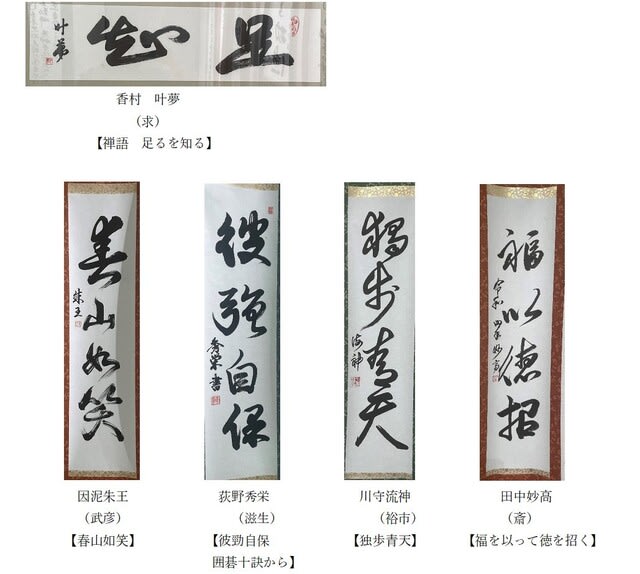 足知
叶夢
香村　叶夢
（求）
【禅語　足るを知る】
春山如笑
朱王
彼強自保
秀栄書
獨歩青天
流神
福以徳招
令和四年妙高
因泥朱王
（武彦）
【春山如笑】
荻野秀栄
（滋生）
【彼勁自保
囲碁十訣から】
川守流神
（裕市）
【独歩青天】
田中妙高
（斎）
【福を以って徳を招く】